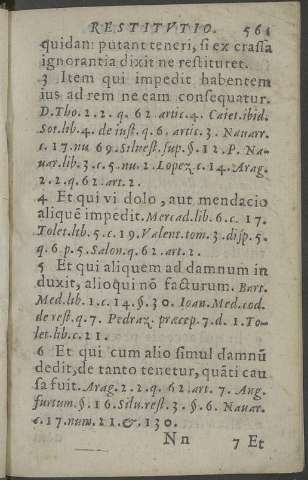 RESTITVTIO. 561
quidan: putant teneri, si ex crassa
ignorantia dixit ne restitueret.
3 Item qui impedit habentem
ius ad rem ne eam consequatur.
D. Tho. 2. 2. q. 62 artic. 4. Caiet. ibid.
Sot. lib. 4. de iust. q. 6. artic. 3. Nauarr.
c. 17. nu 69. Siluest. sup. §. 12. P. Na-
uar. lib. 3. c. 5. nu. 2. Lopez c. 14. Arag.
2. 2. q. 62. art. 2.
4 Et qui vi dolo, aut mendacio
aliquē impedit. Mercad. lib. 6. c. 17.
Tolet. lib. 5. c. 19. Valent. tom. 3. disp. 5.
q. 6. p. 5. Salon. q. 62. art. 2.
5 Et qui aliquem ad damnum in
duxit, alioqui nō facturum. Bart.
Med. lib. 1. c. 14. §. 30. Ioan. Med. cod.
de rest. q. 7. Pedraz. præcep. 7. d. 1. To-
let. lib. c. 21.
6 Et qui cum alio simul damnū
dedit, de tanto tenetur, quāti cau
sa fuit. Arag. 2. 2. q. 62. art. 7. Ang.
furtum. §. 16. Silu. rest. 3. §. 6. Nauar.
c. 17. num. 21. & 130.
Nn 7 Et